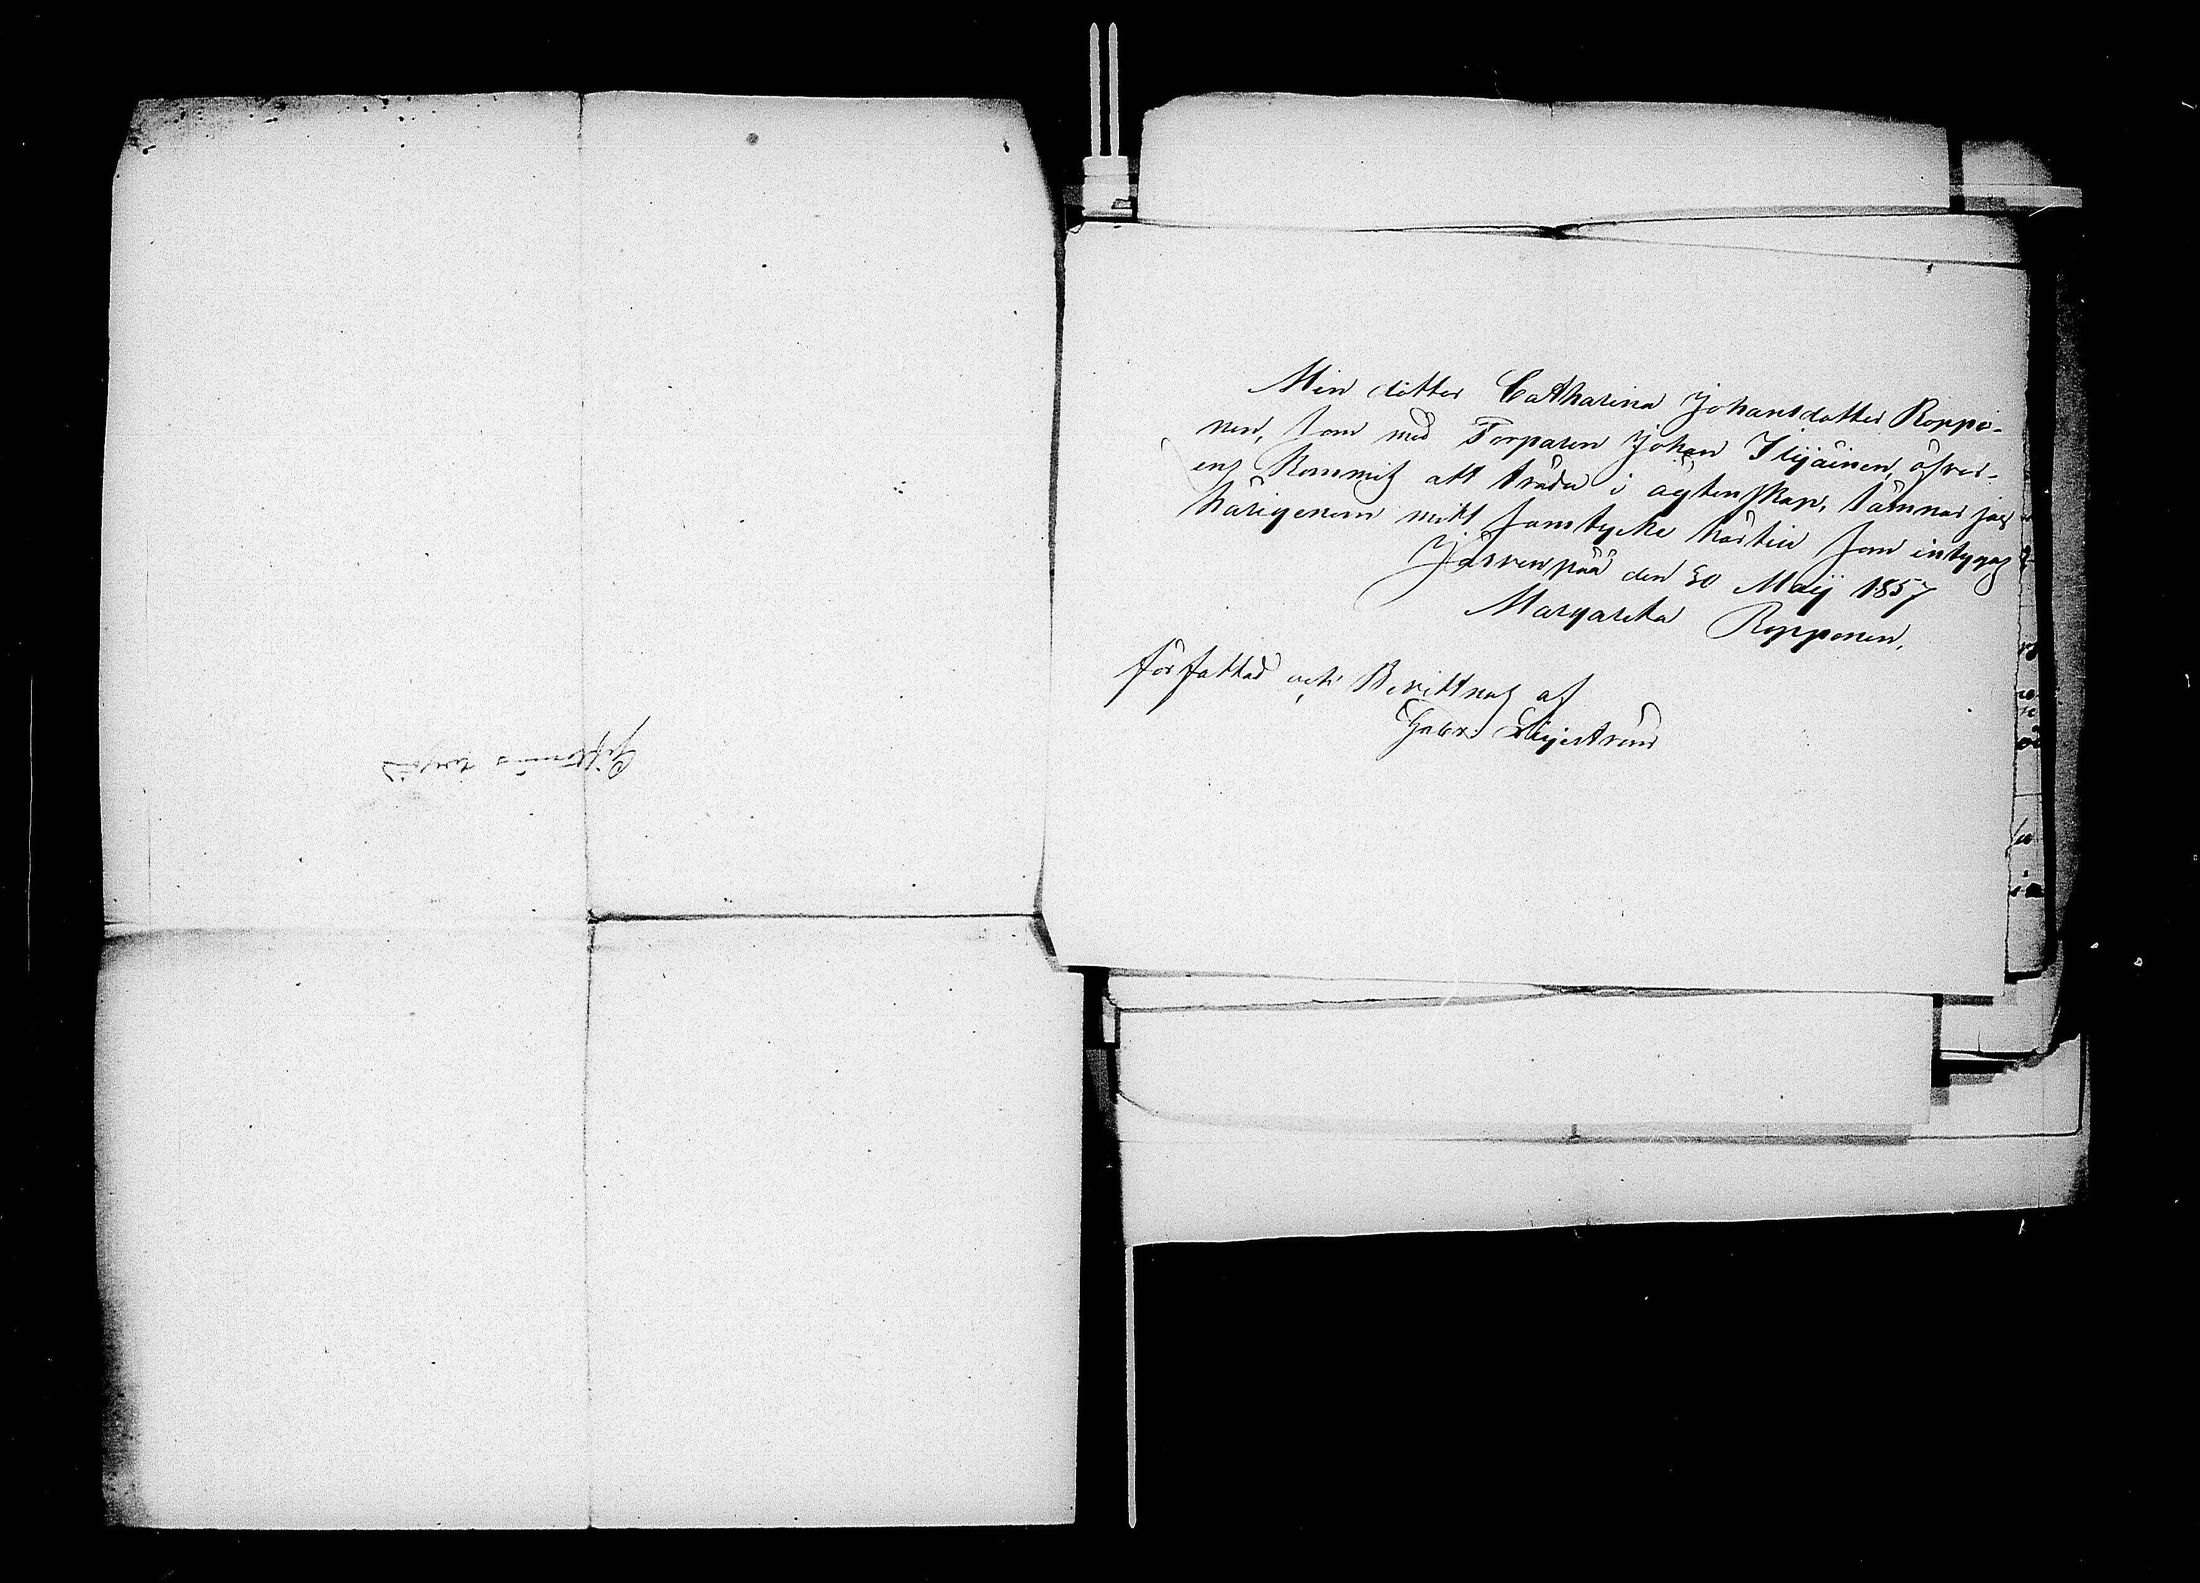 Min dotter Catharina Johansdotter Roppo-
nen, som med Torparen Johan Ilijäinen, öfver-
ens kommit att träda i ägtenskap, lämnar jag
härigenom mitt samtycke härtill som intygas
Järvenpää den 30 Maij 1857
Margareta Ropponen.
författad och Bevittnas af
Gabr. Liljestrand